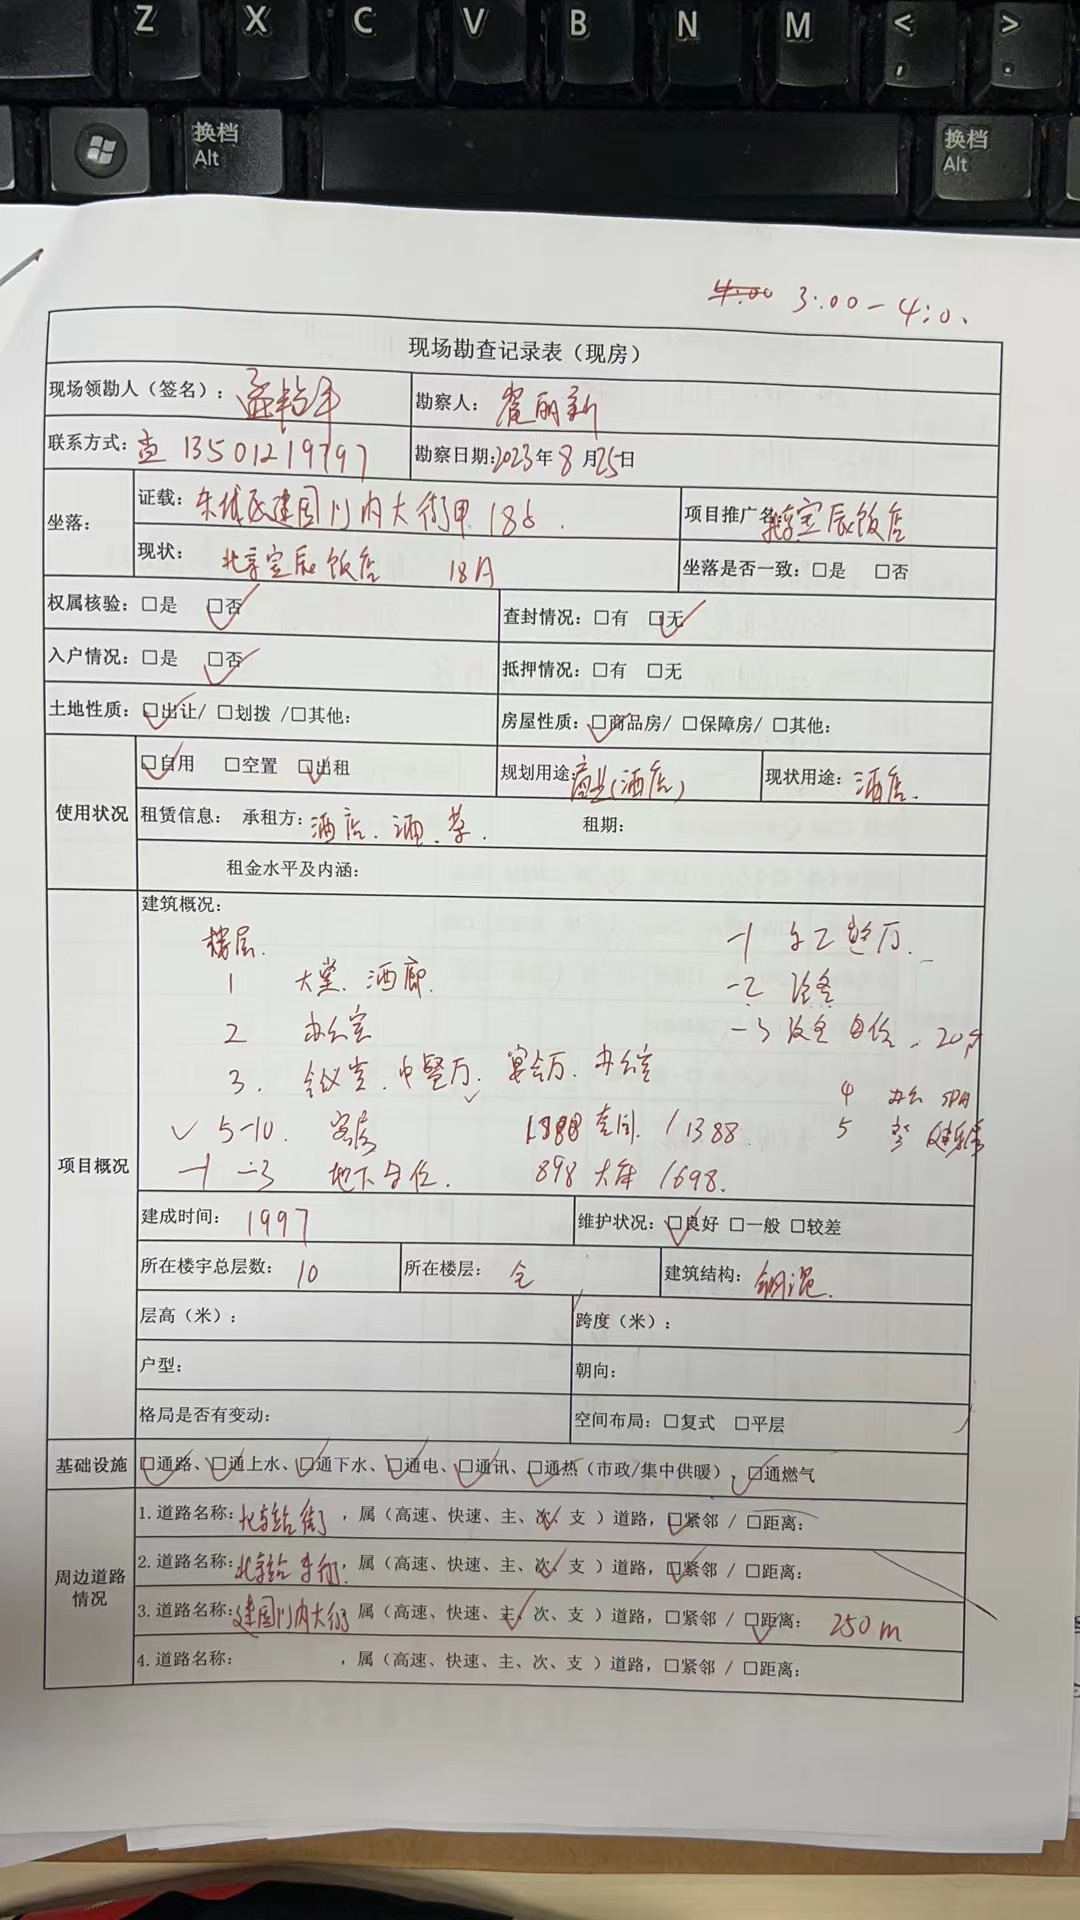 Z X C V B N M < , > .
换档 Alt 换档 Alt
4:00 3:00-4:0.
现场勘查记录表（现房）
现场领勘人（签名）： 勘察人：
联系方式： 13501219797 勘察日期:2023年8月25日
坐落： 证载：东城区建国门内大街甲18号. 项目推广名: 北京宝辰饭店
现状： 北京宝辰饭店 18A 坐落是否一致：□是 □否
权属核验：□是 □否 查封情况：□有 □无
入户情况：□是 □否 抵押情况：□有 □无
土地性质：□出让/ □划拨 /□其他： 房屋性质：□商品房/ □保障房/ □其他：
使用状况 □自用 □空置 □出租 规划用途：商业(酒店) 现状用途：酒店.
租赁信息： 承租方：酒店. 酒. 茶. 租期：
租金水平及内涵：
项目概况 建筑概况：
楼层. -1 员工餐厅.
1 大堂、酒廊. -2 设备
2 办公室 -3 设备 车位. 20个
3. 会议室. 中餐厅. 宴会厅. 办公室
4 办公 SPA
5-10. 客房 1388 套间. /1388. 5
-1 -3 地下车位. 898 大床 1698.
建成时间： 1997 维护状况：□良好 □一般 □较差
所在楼宇总层数： 10 所在楼层： 全 建筑结构： 钢混.
层高（米）： 跨度（米）：
户型： 朝向：
格局是否有变动： 空间布局：□复式 □平层
基础设施 □通路、□通上水、□通下水、□通电、□通讯、□通热（市政/集中供暖）、□通燃气
周边道路情况 1.道路名称：北京站街 ，属（高速、快速、主、次、支 ）道路，□紧邻 / □距离：
2.道路名称：北京站东街，属（高速、快速、主、次、支 ）道路，□紧邻 / □距离：
3.道路名称：建国门内大街 属（高速、快速、主、次、支 ）道路，□紧邻 / □距离： 250m
4.道路名称： ，属（高速、快速、主、次、支 ）道路，□紧邻 / □距离：